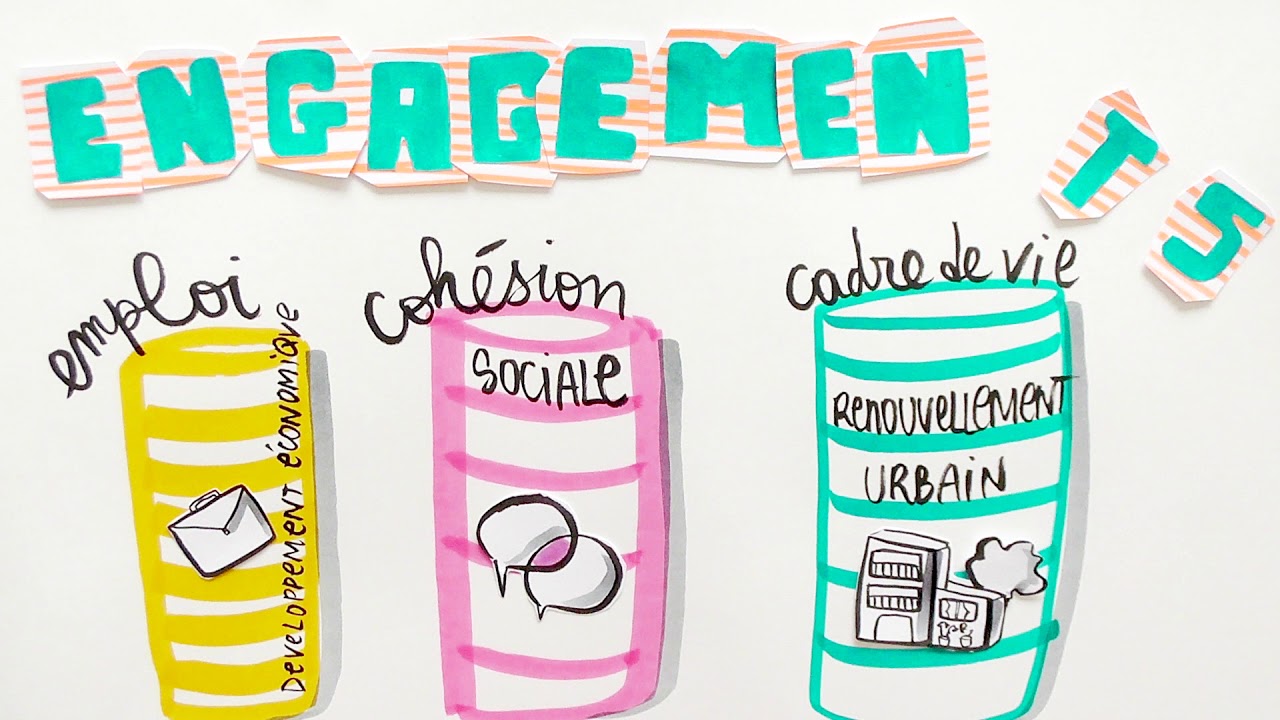 ENGAGEMENTS
emploi
Developpement économique
cohésion
SOCIALE
cadre de vie
RENOUVELLEMENT
URBAIN